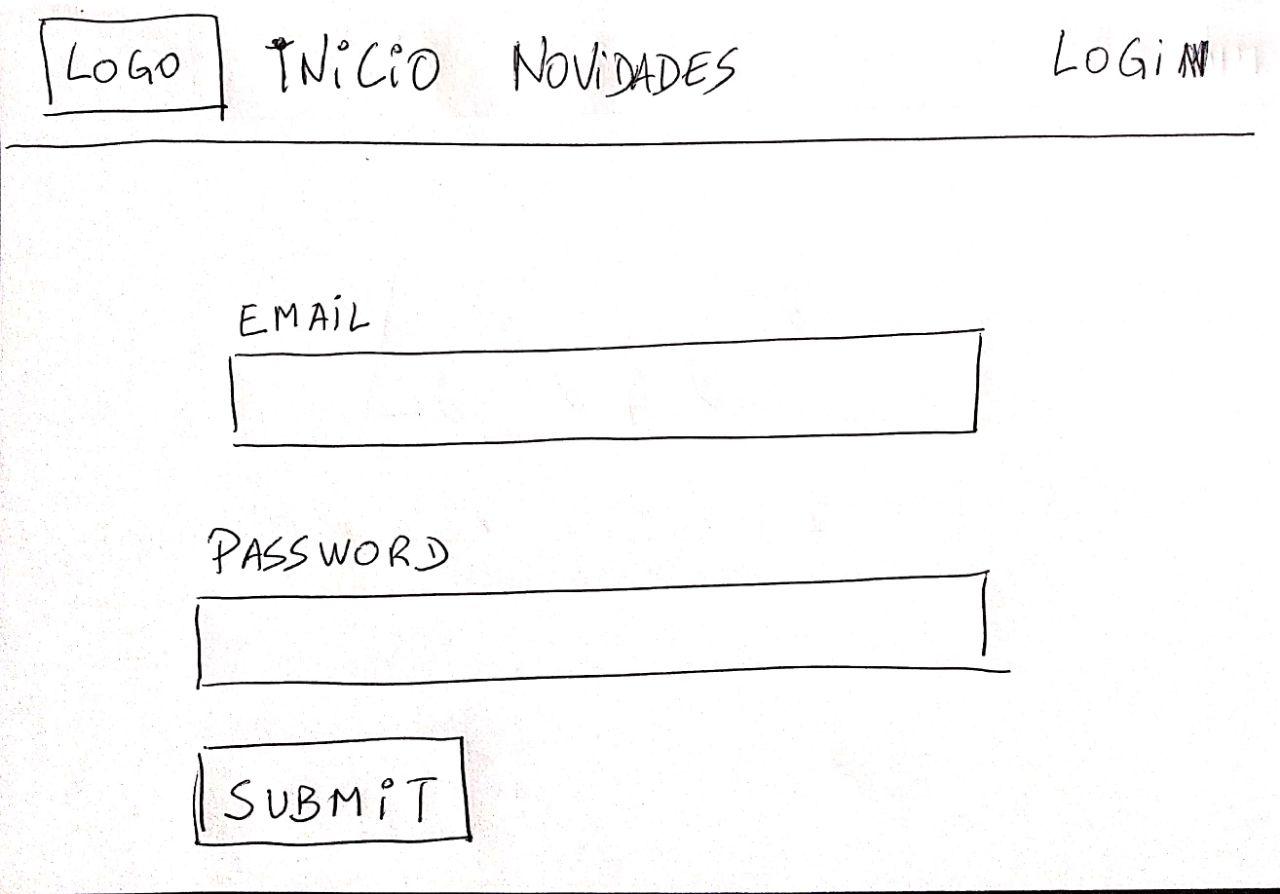 LOGO INiCiO NOViDADES LOGiN
EMAiL
PASSWORD
SUBMiT